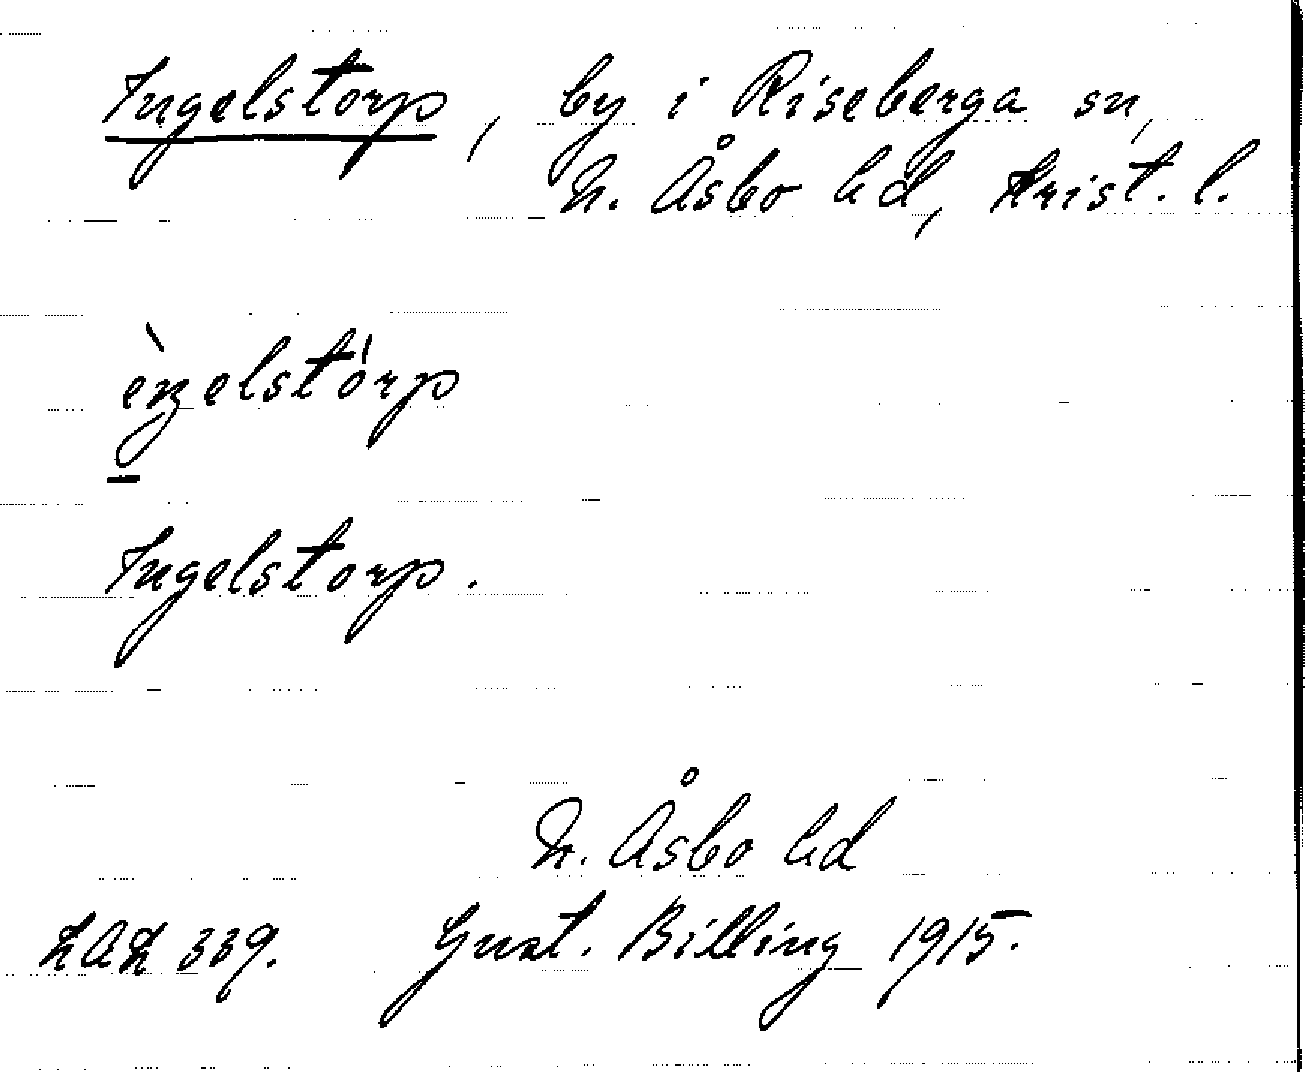 Ingelstorp, by i Riseberga sn,
N. Åsbo hd, Krist. l.
èŋelstórp
Ingelstorp.
N. Åsbo hd
339. Gust. Billing 1915.